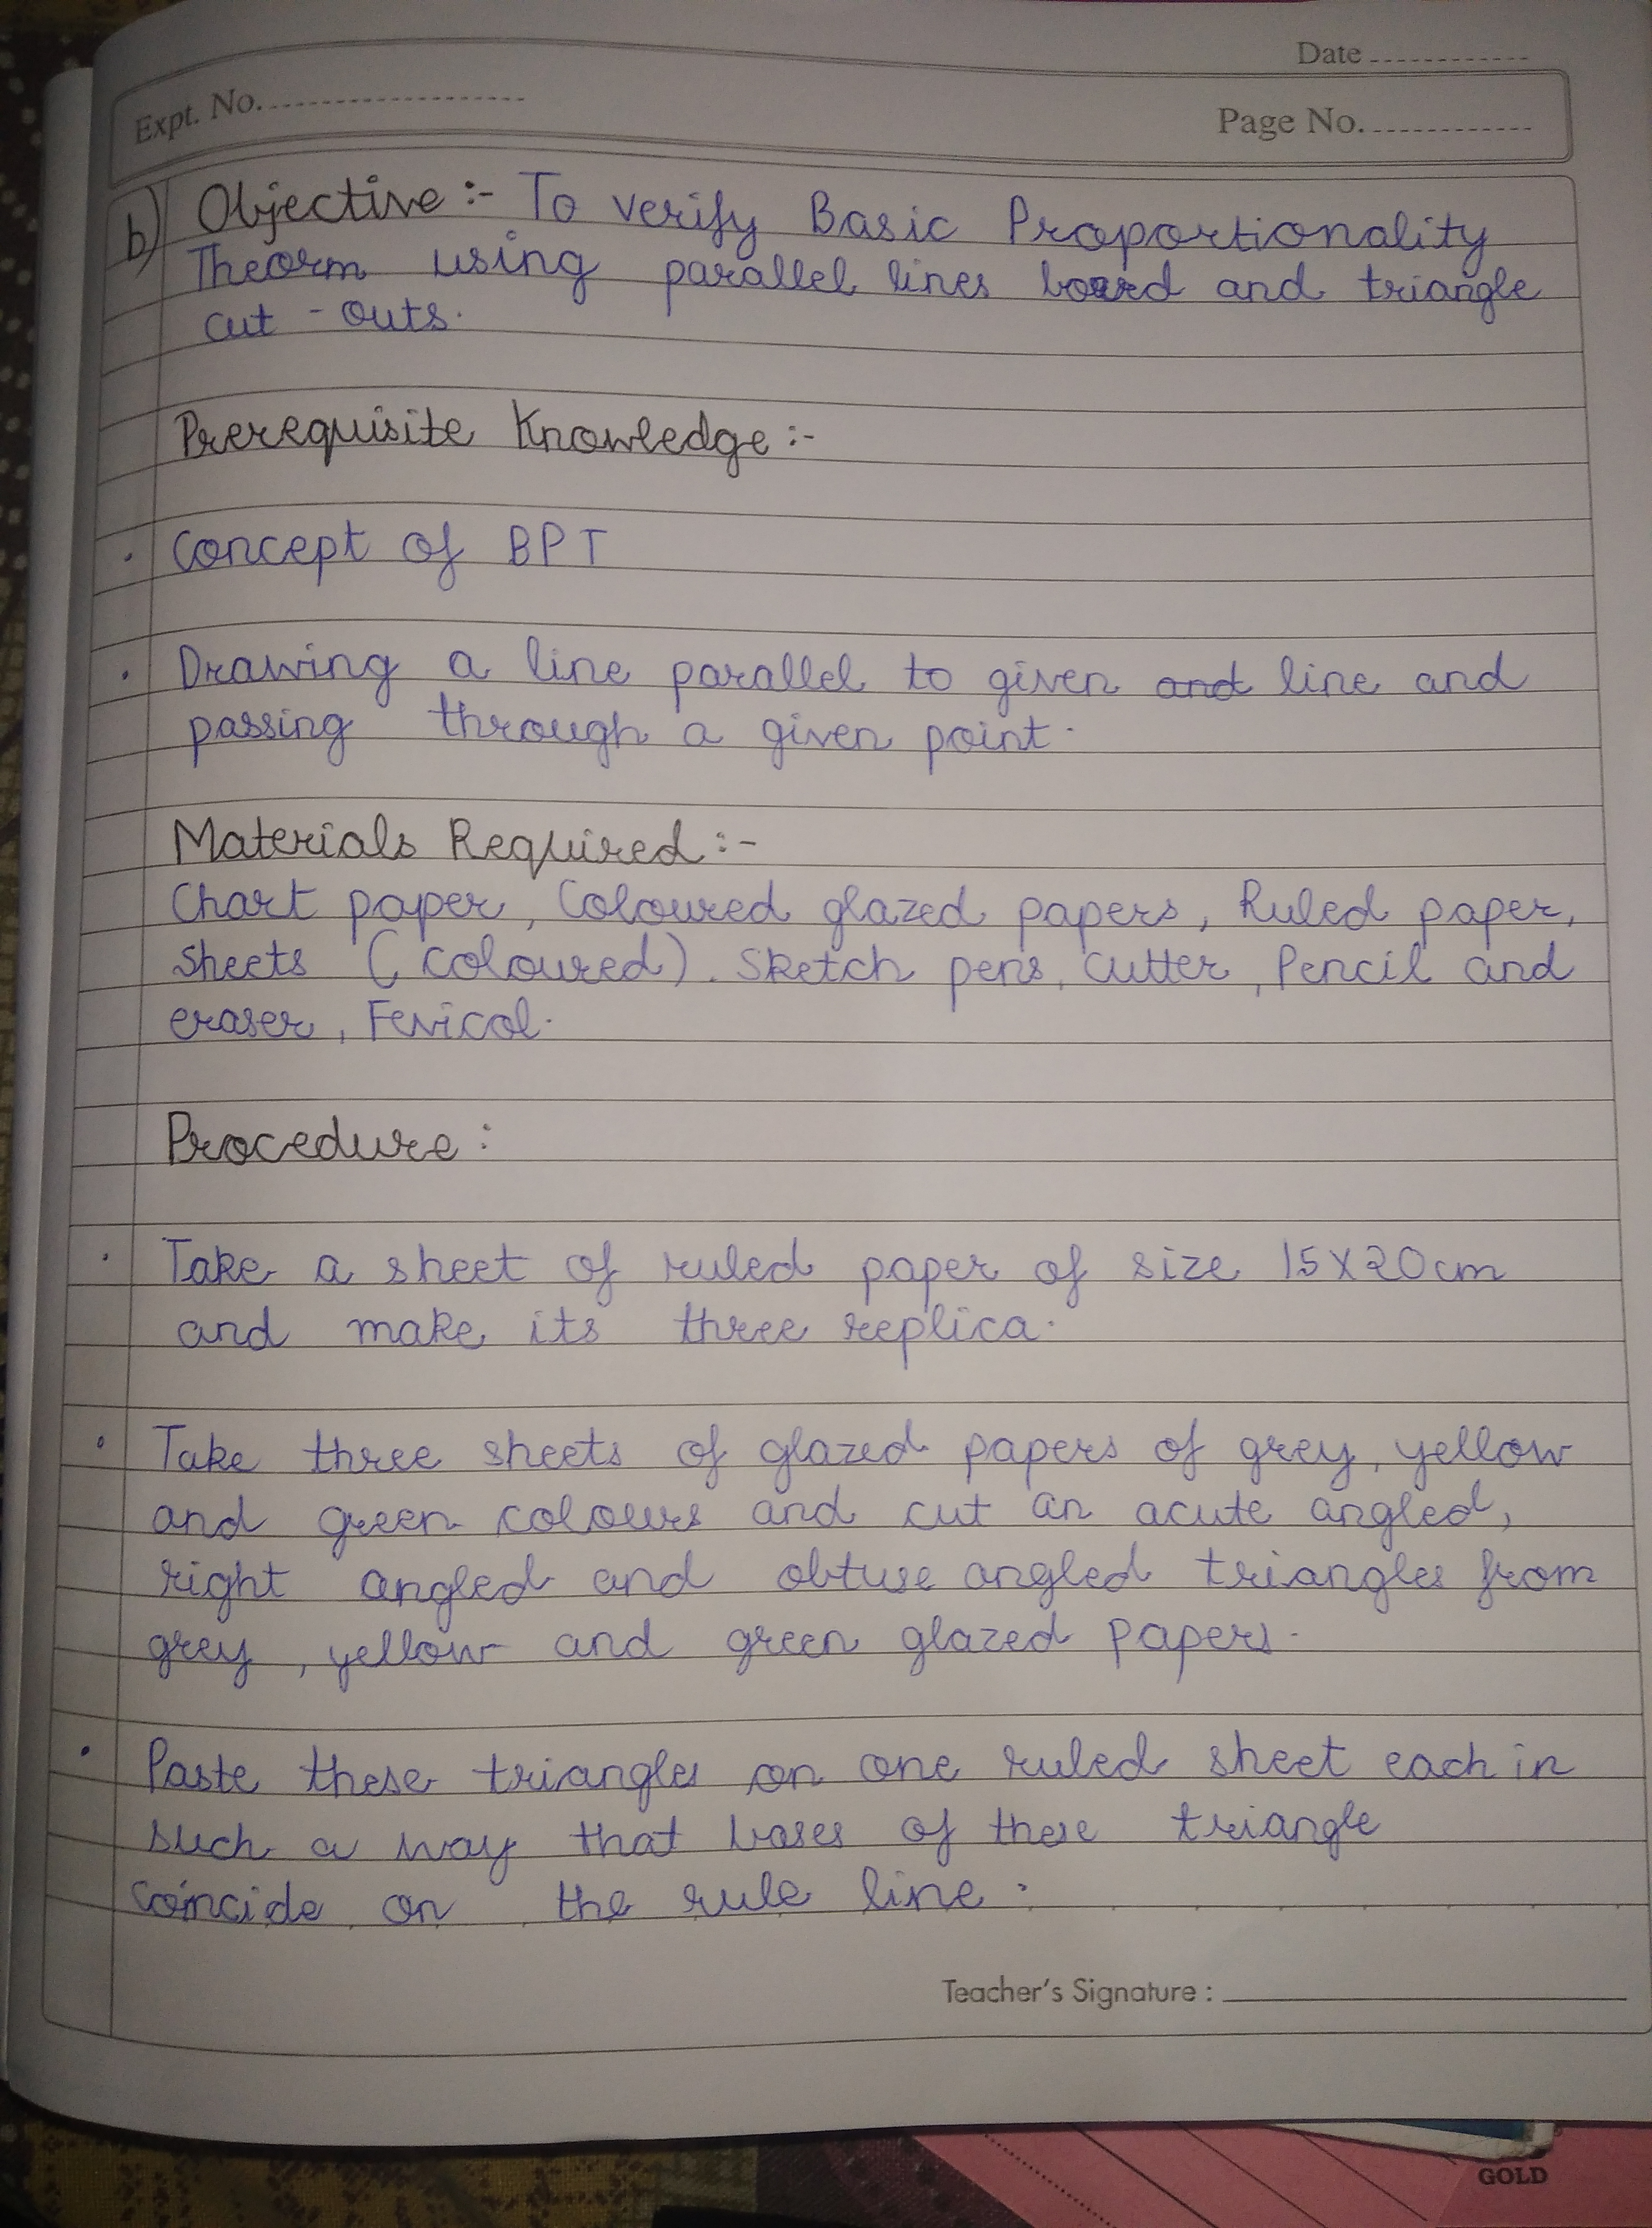 Date
Expt. No.
Page No.
b) Objective :- To verify Basic Proportionality
Theorm using parallel lines board and triangle
cut - outs.
Prerequisite Knowledge :-
· Concept of BPT
· Drawing a line parallel to given and line and
passing through a given point.
Materials Required :-
Chart paper, Coloured glazed papers, Ruled paper,
sheets (coloured). Sketch pens, cutter, Pencil and
eraser, Fevicol.
Procedure :
· Take a sheet of ruled paper of size 15X20cm
and make its three replica.
· Take three sheets of glazed papers of grey, yellow
and green colours and cut an acute angled,
right angled and obtuse angled triangles from
grey, yellow and green glazed papers.
· Paste these triangles on one ruled sheet each in
such a way that bases of these triangle
coincide on the rule line.
Teacher's Signature :
GOLD